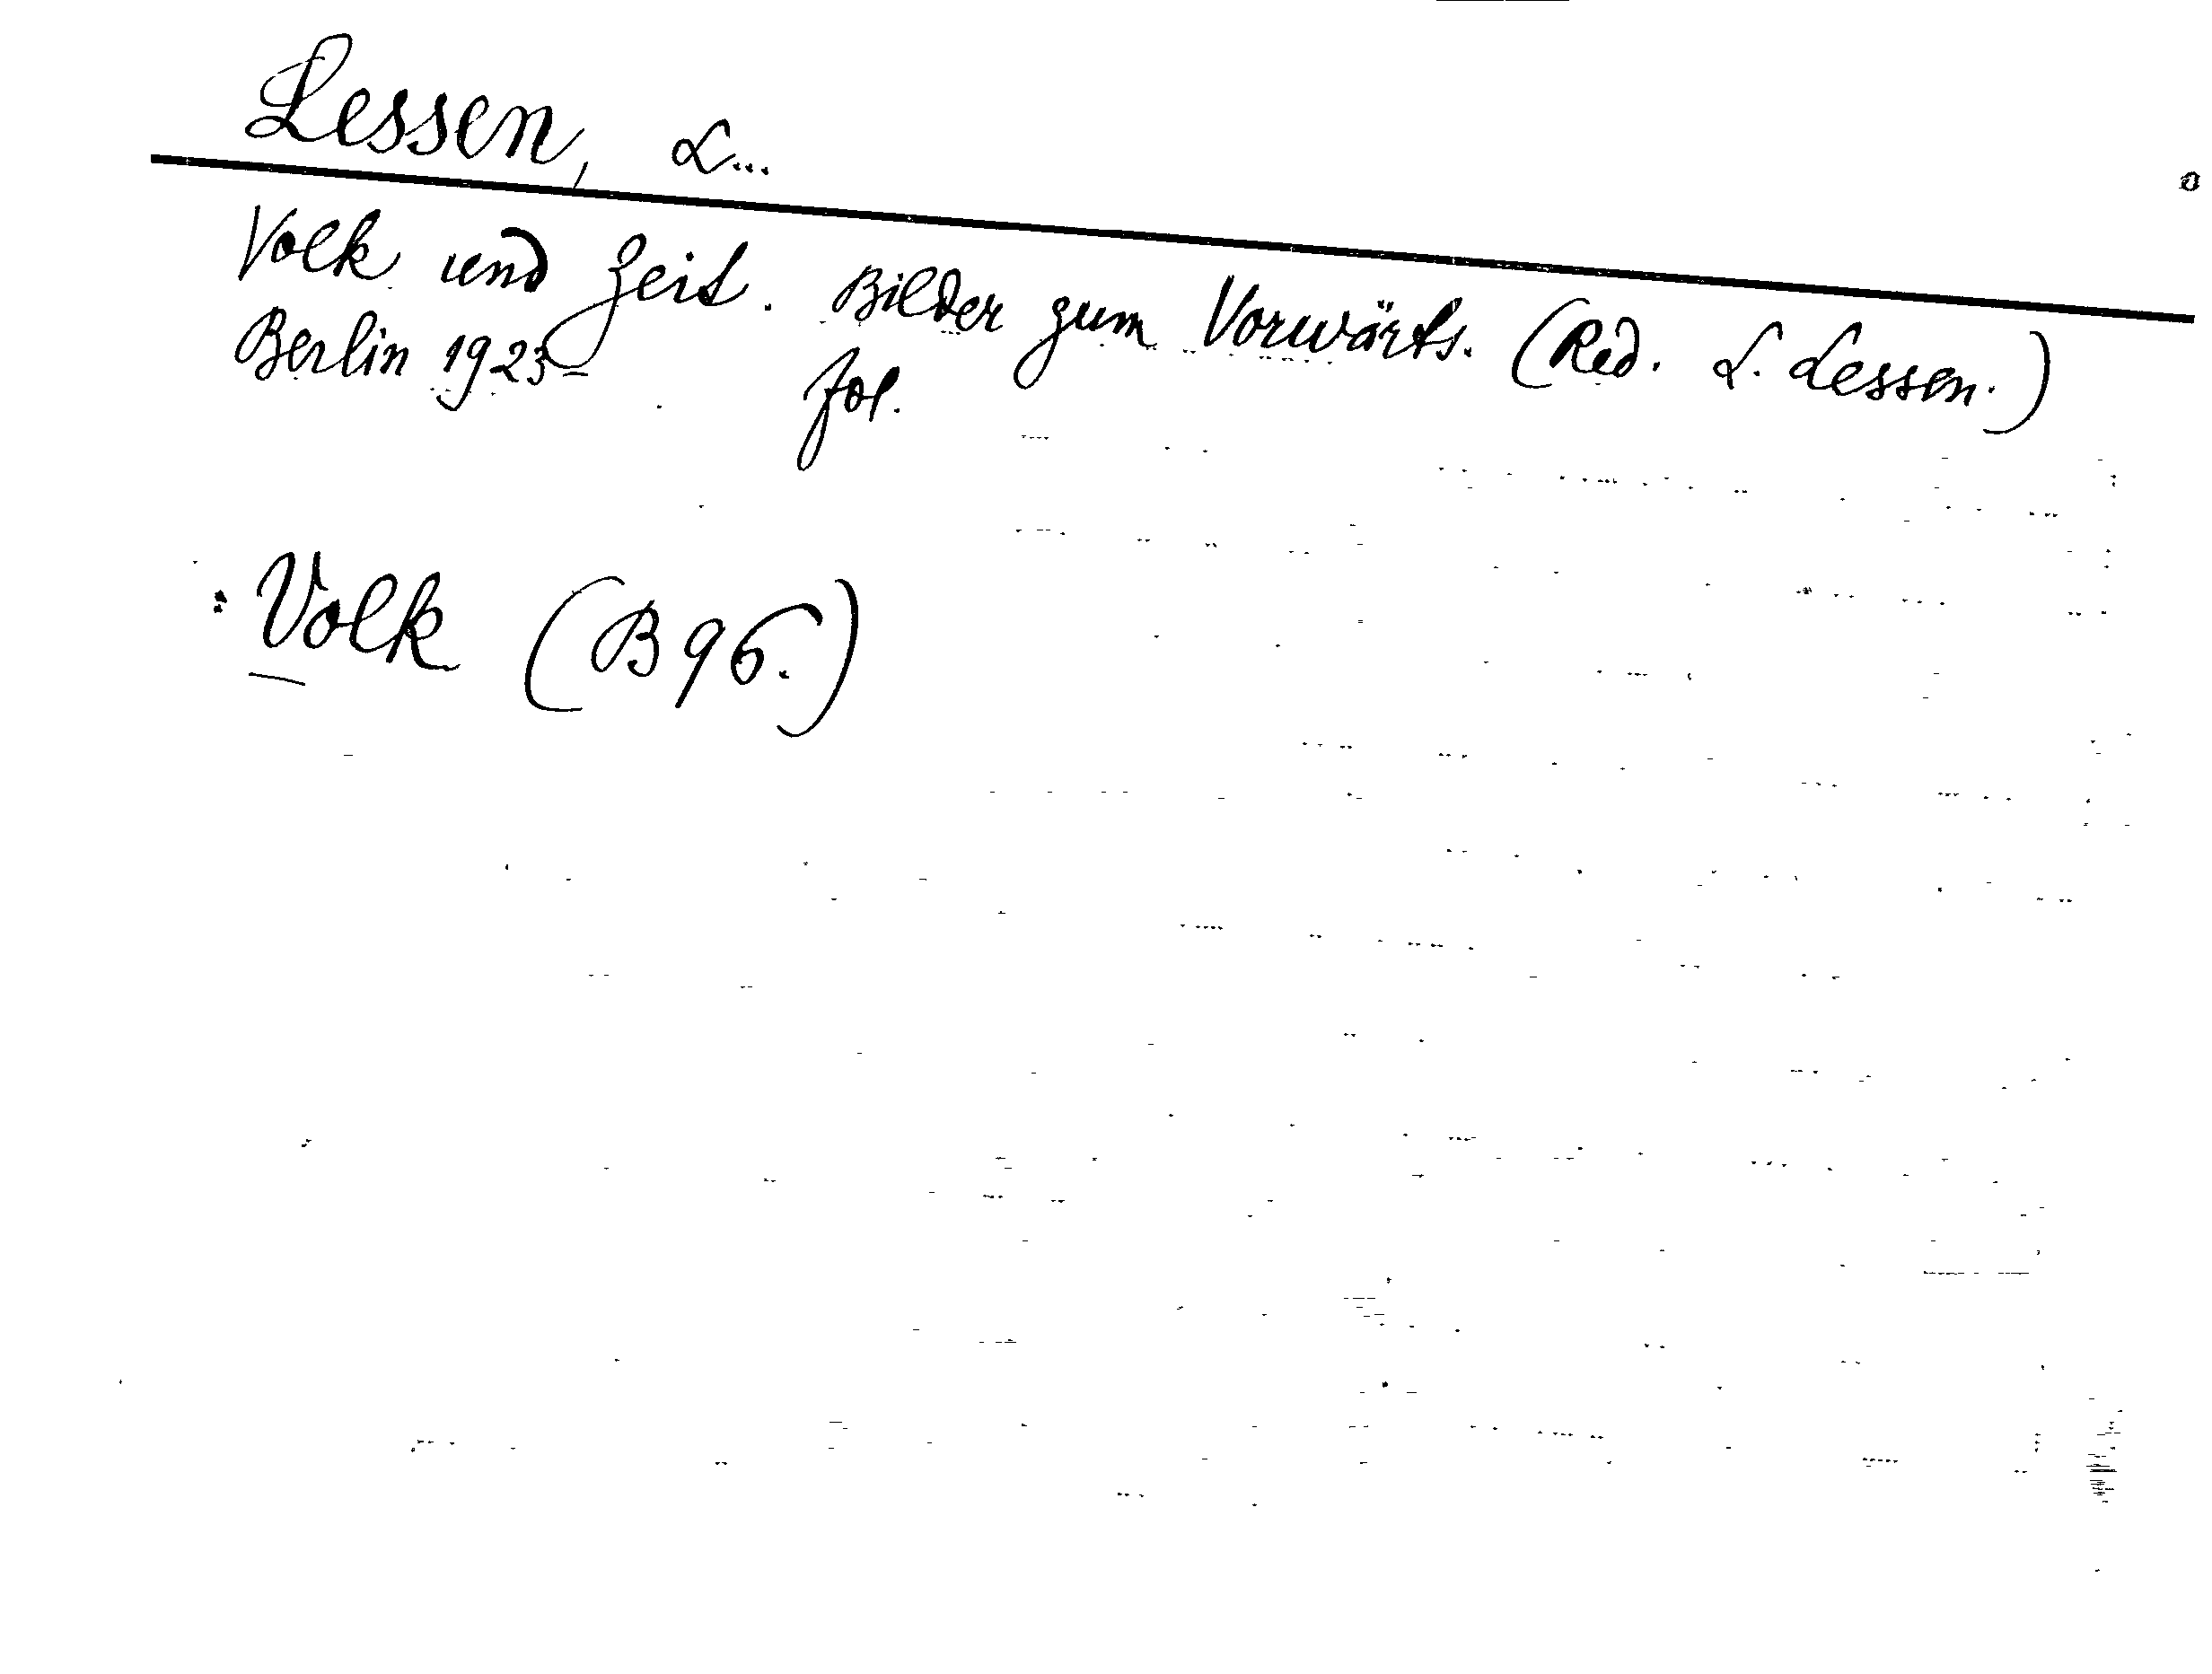 Lessen, L...
Volk und Zeit. Bilder zum Vorwärts. (Red. L. Lessen.)
Berlin 1923- fol.
: Volk (B 96.)